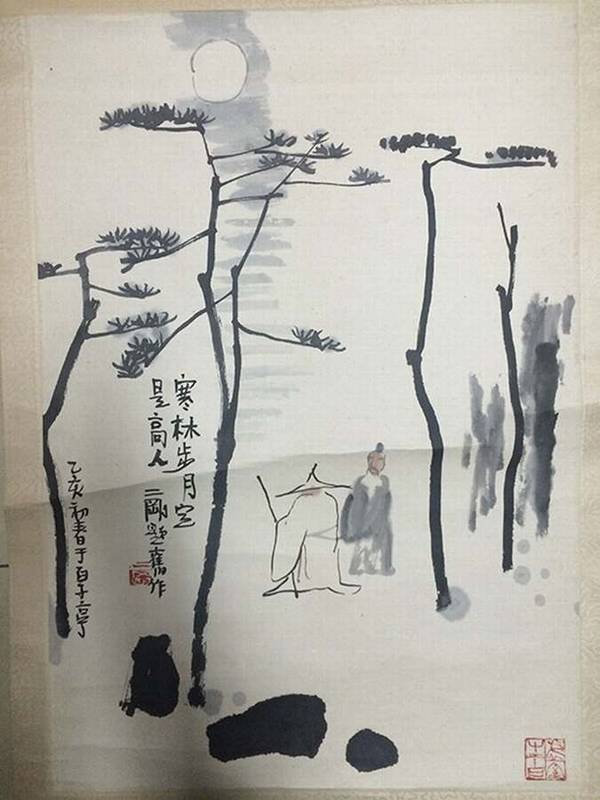 寒林步月定
是高人 二剛題舊作
乙亥初春于百子亭